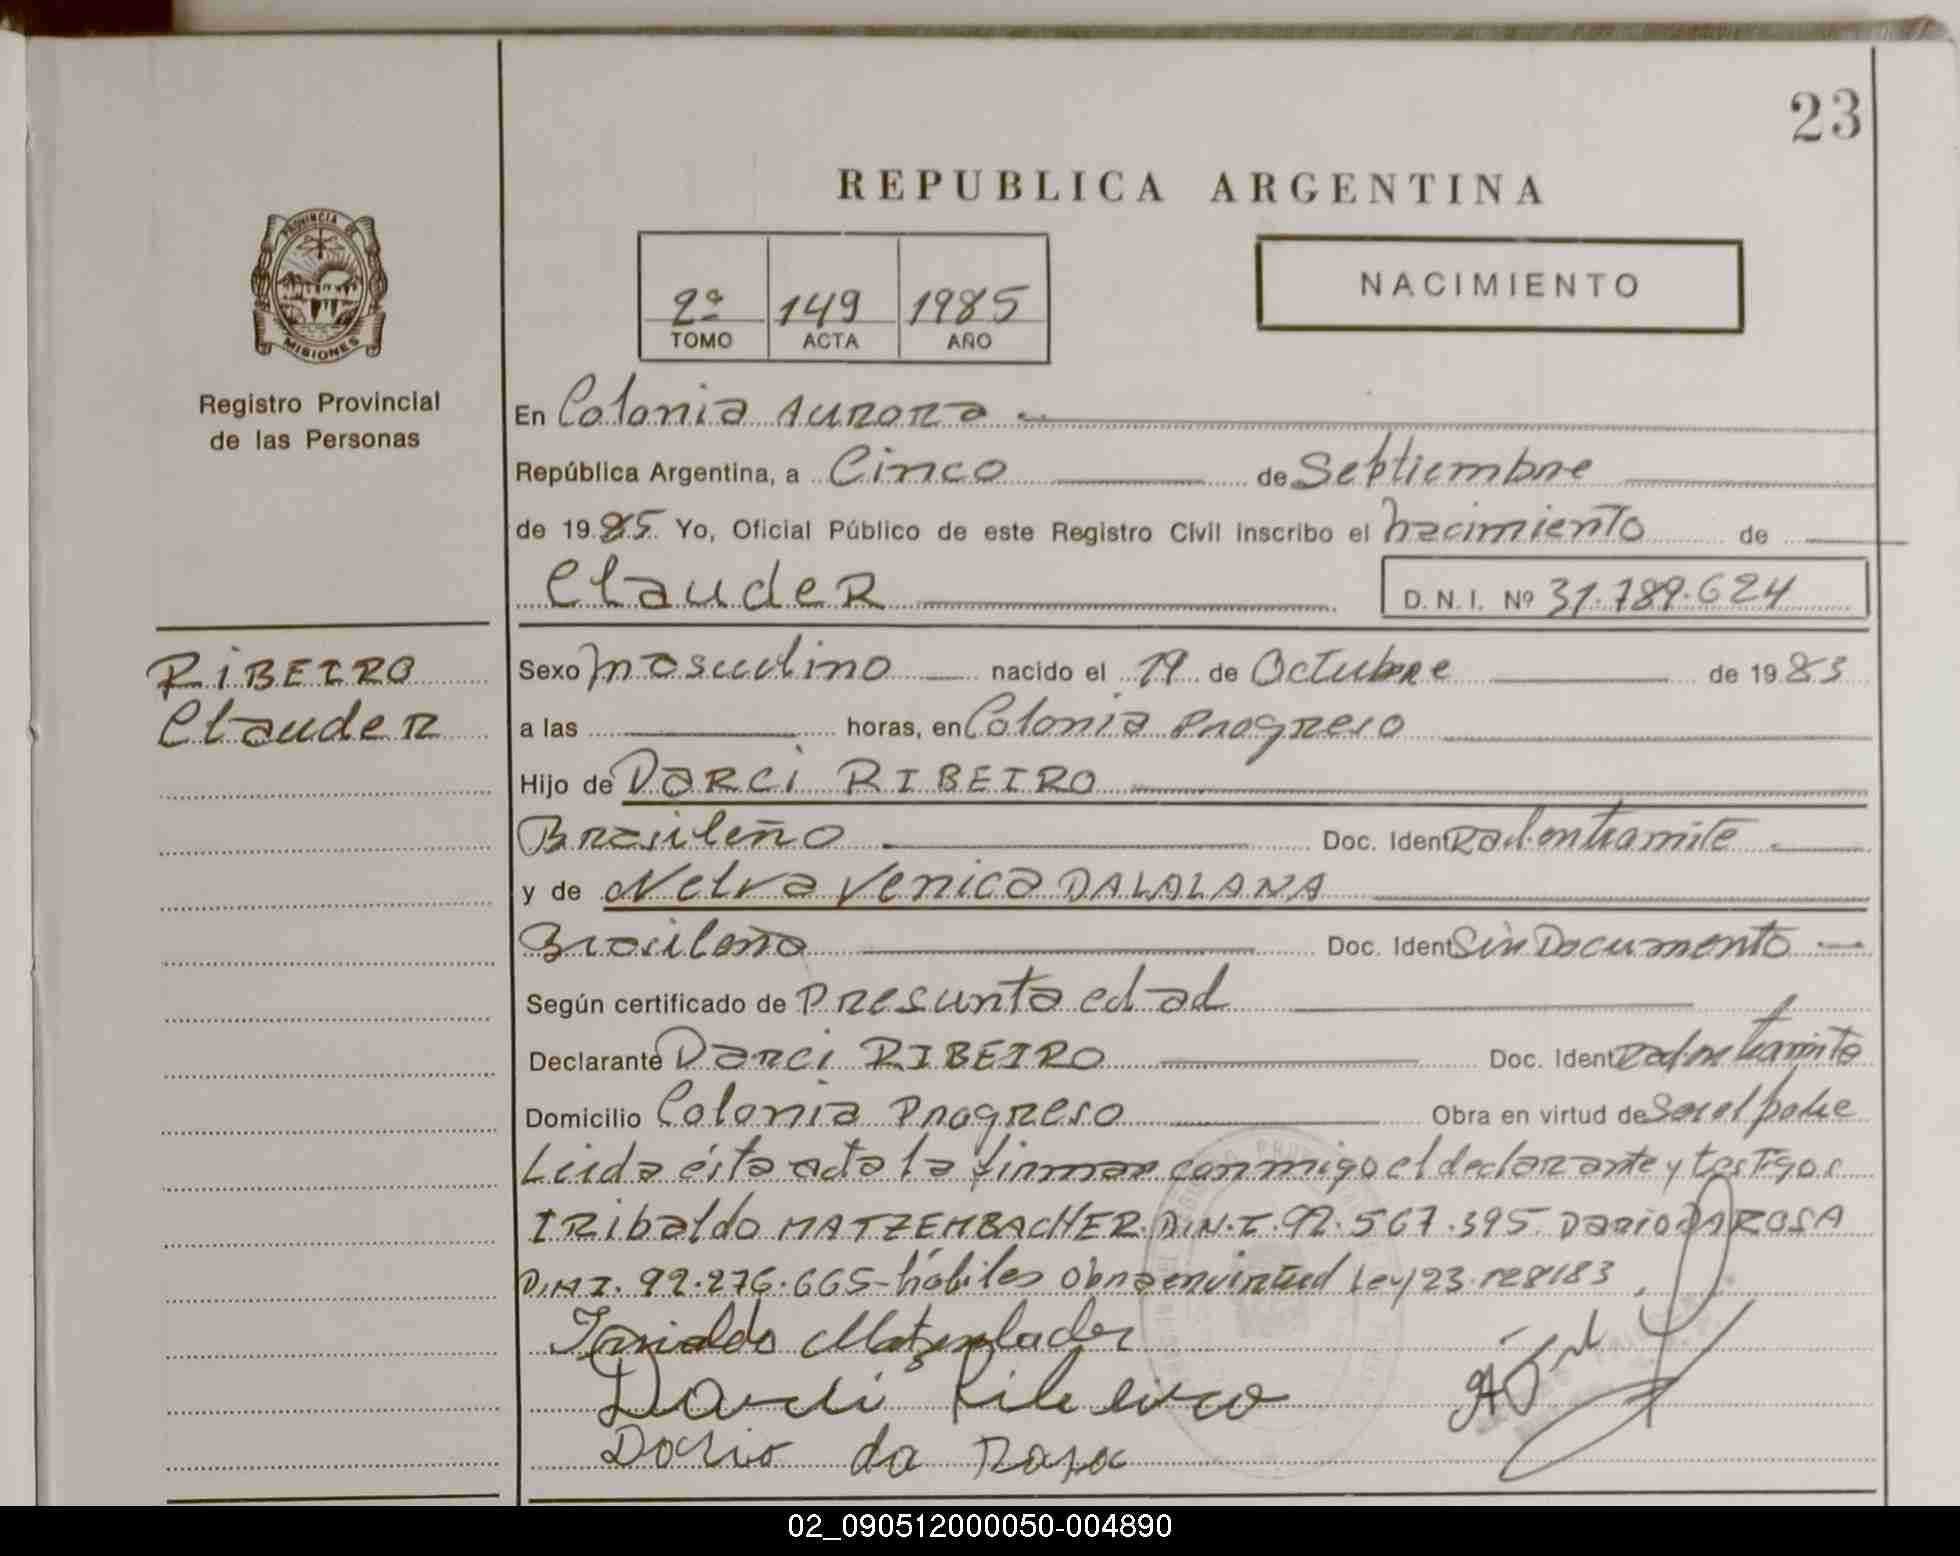 23
REPUBLICA ARGENTINA
PROVINCIA DE
MISIONES
Registro Provincial
de las Personas
NACIMIENTO
2º 149 1985
TOMO ACTA AÑO
En Colonia Aurora
República Argentina, a Cinco de Septiembre
de 1985. Yo, Oficial Público de este Registro Civil inscribo el nacimiento de
Clauder D. N. I. Nº 31.789.624
RiBEIRO
Clauder
Sexo masculino nacido el 19 de Octubre de 1983
a las horas, en Colonia Progreso
Hijo de Darci RIBEIRO
Brasileño Doc. Ident Rad. en tramite
y de Nelva Venica DALALANA
Brasileña Doc. Ident Sin Documento
Según certificado de Presunta edad
Declarante Darci RIBEIRO Doc. Ident Rad. en tramite
Domicilio Colonia Progreso Obra en virtud de Ser el padre
Leida ésta acta la firman conmigo el declarante y testigos
IRibaldo MATZEMBACHER. D.N.I. 92.567.395. Dario DA ROSA
D.N.I. 92.276.665- hábiles Obra en virtud Ley 23.128/83
Darci Ribeiro
Dario da Rosa
02_090512000050-004890